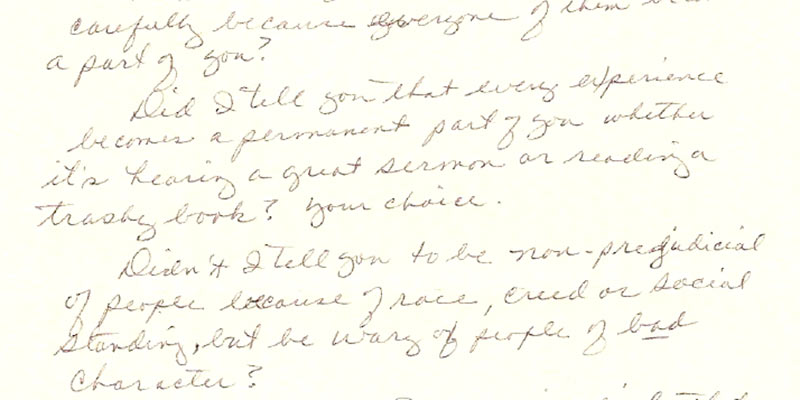 carefully because everyone of them
a part of you?
Did I tell you that every experience
becomes a permanent part of you whether
it's hearing a great sermon or reading a
trashy book? Your choice.
Didn't I tell you to be non-prejudicial
of people because of race, creed or social
standing, but be wary of people of bad
character?